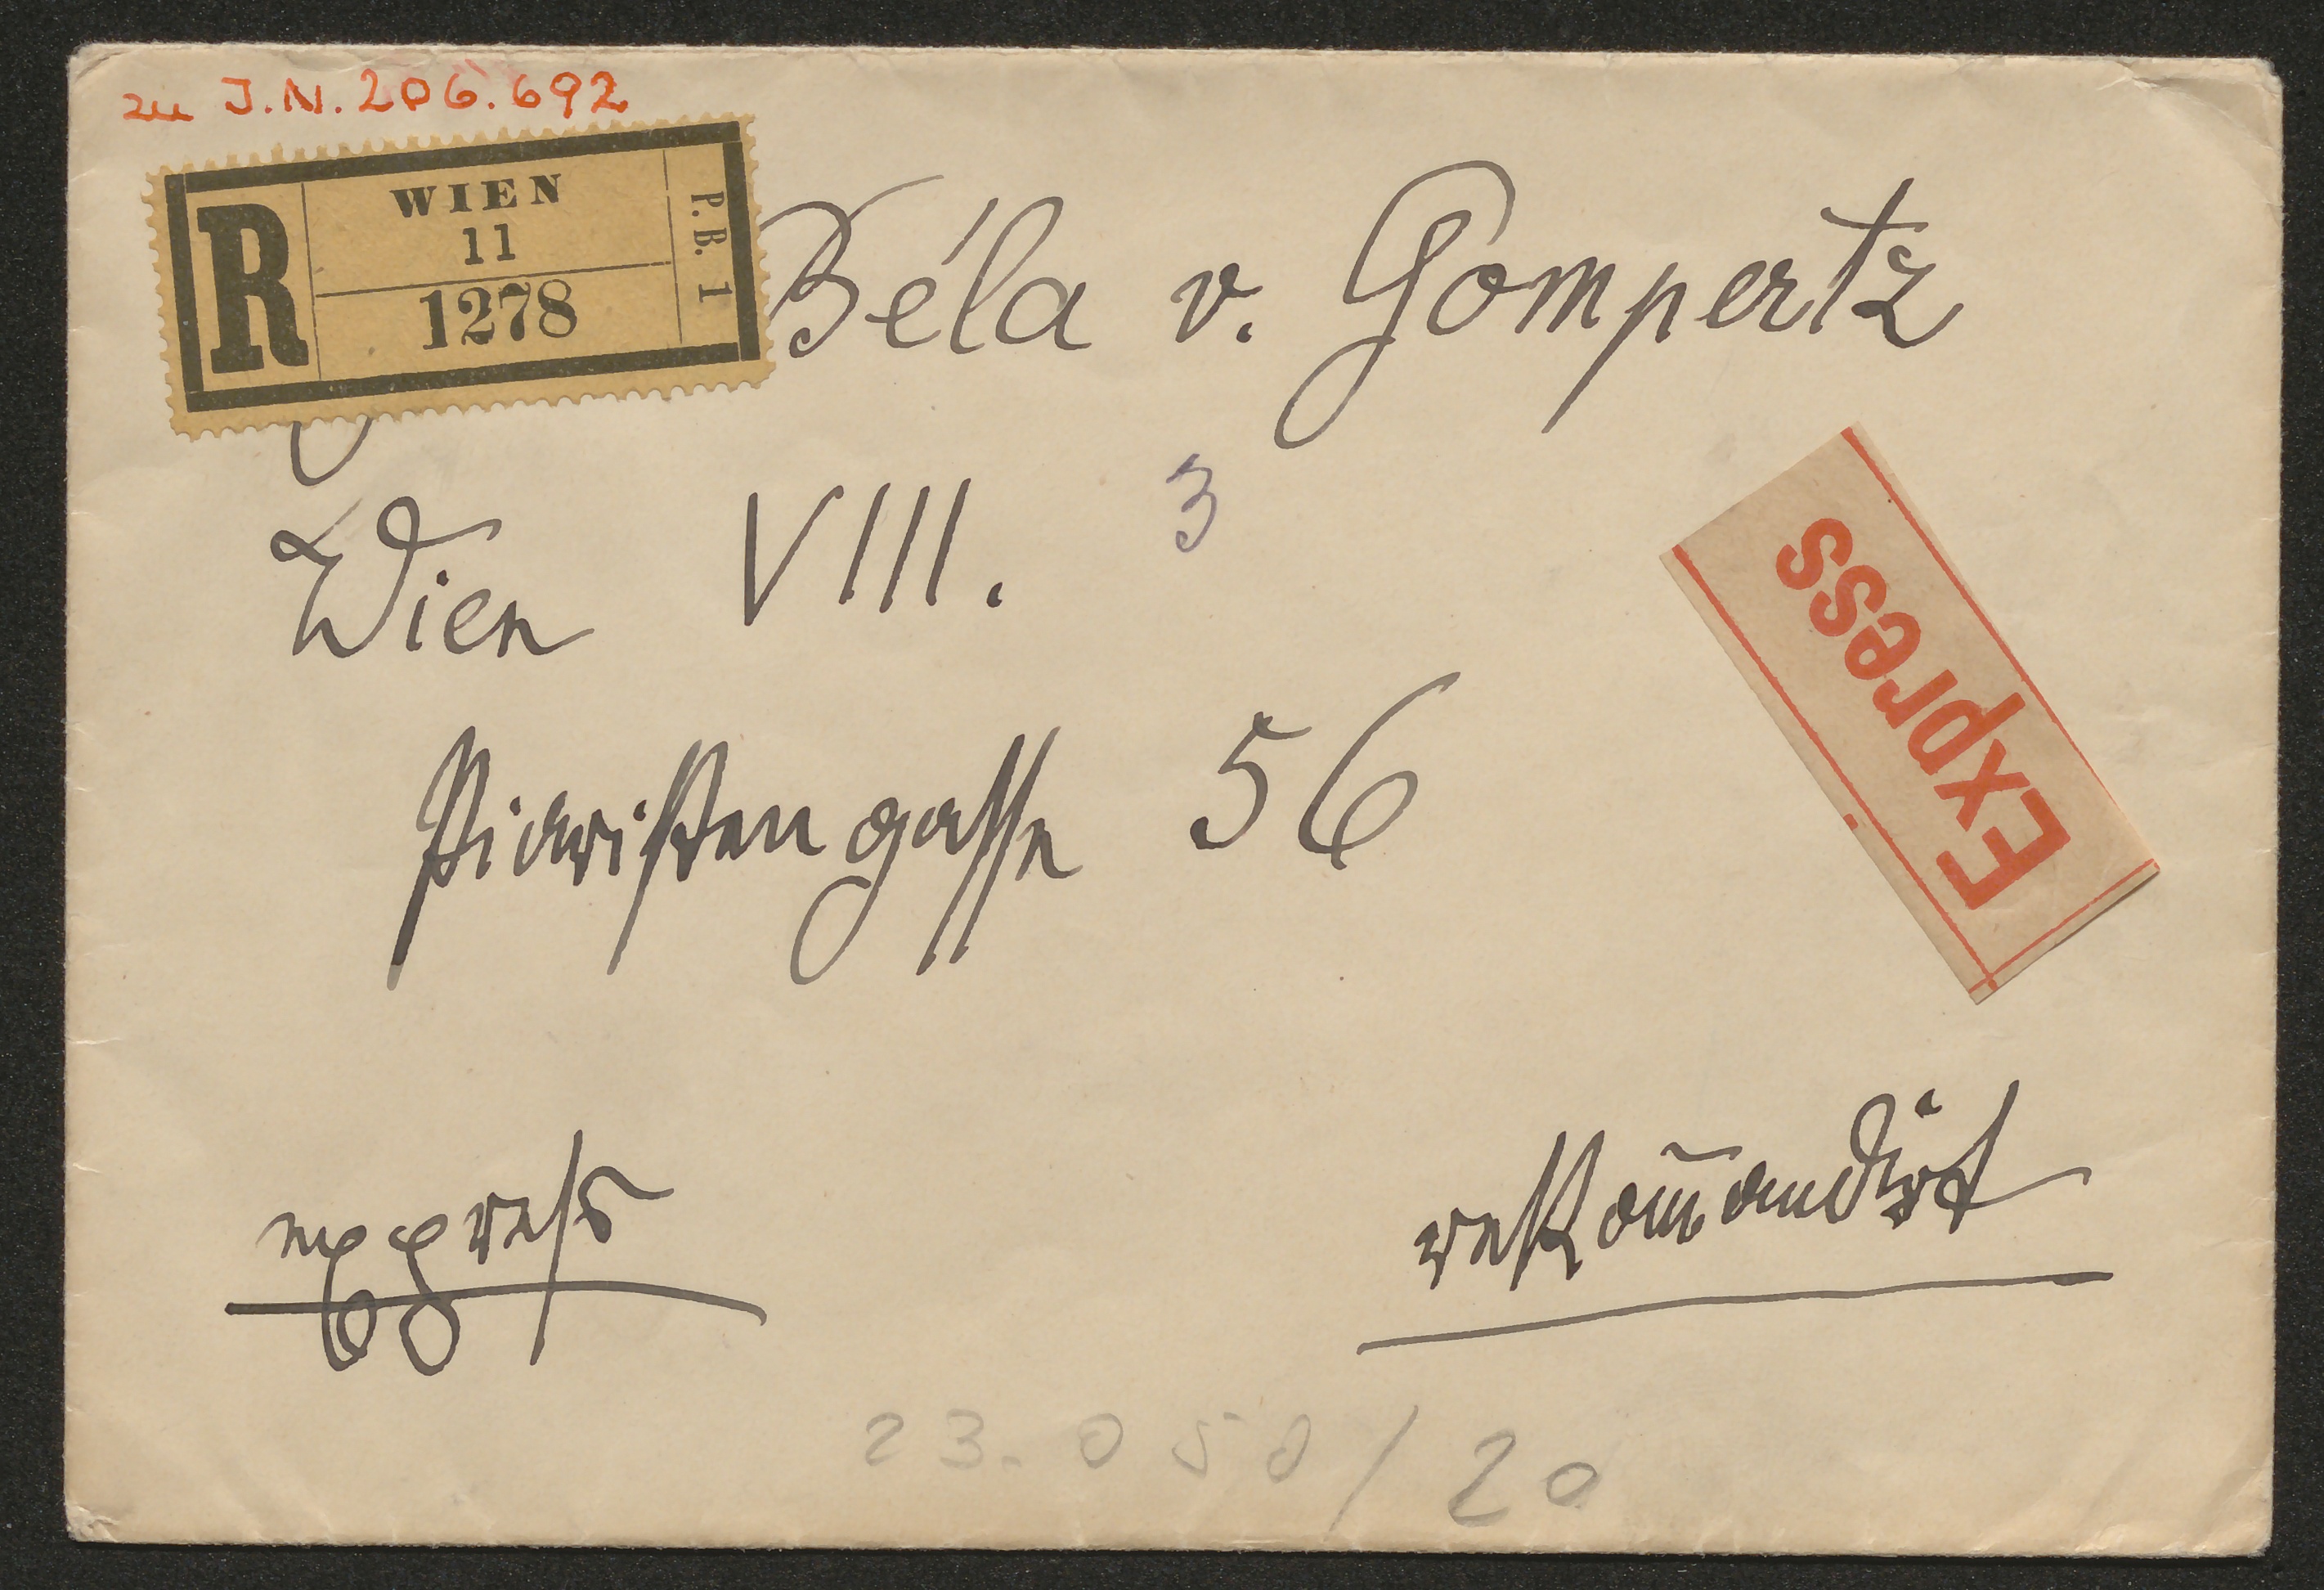 zu J.N. 206.692
R
WIEN
11
1278
P. B. 1
Béla v. Gompertz
Wien VIII.
3
Piaristengasse 56
Express
express
rekom̄andirt
23.050/20